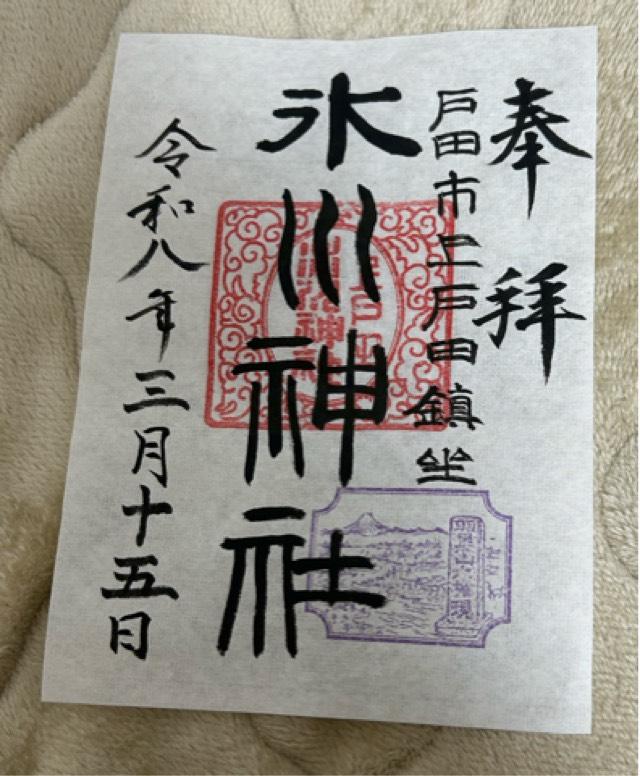 奉拝
戸田市上戸田鎮坐
氷川神社
令和八年三月十五日